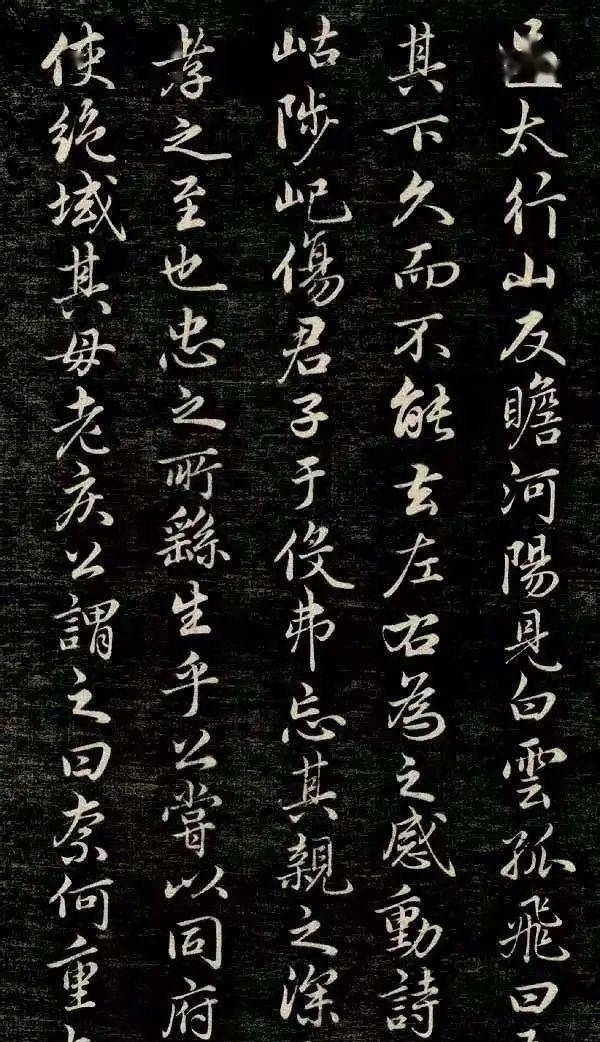 太行山反瞻河陽見白雲孤飛曰
其下久而不能去左右為之感動詩
岵陟屺傷君子于役弗忘其親之深
孝之至也忠之所繇生乎公嘗以同府
使絕域其母老疾公謂之曰奈何重